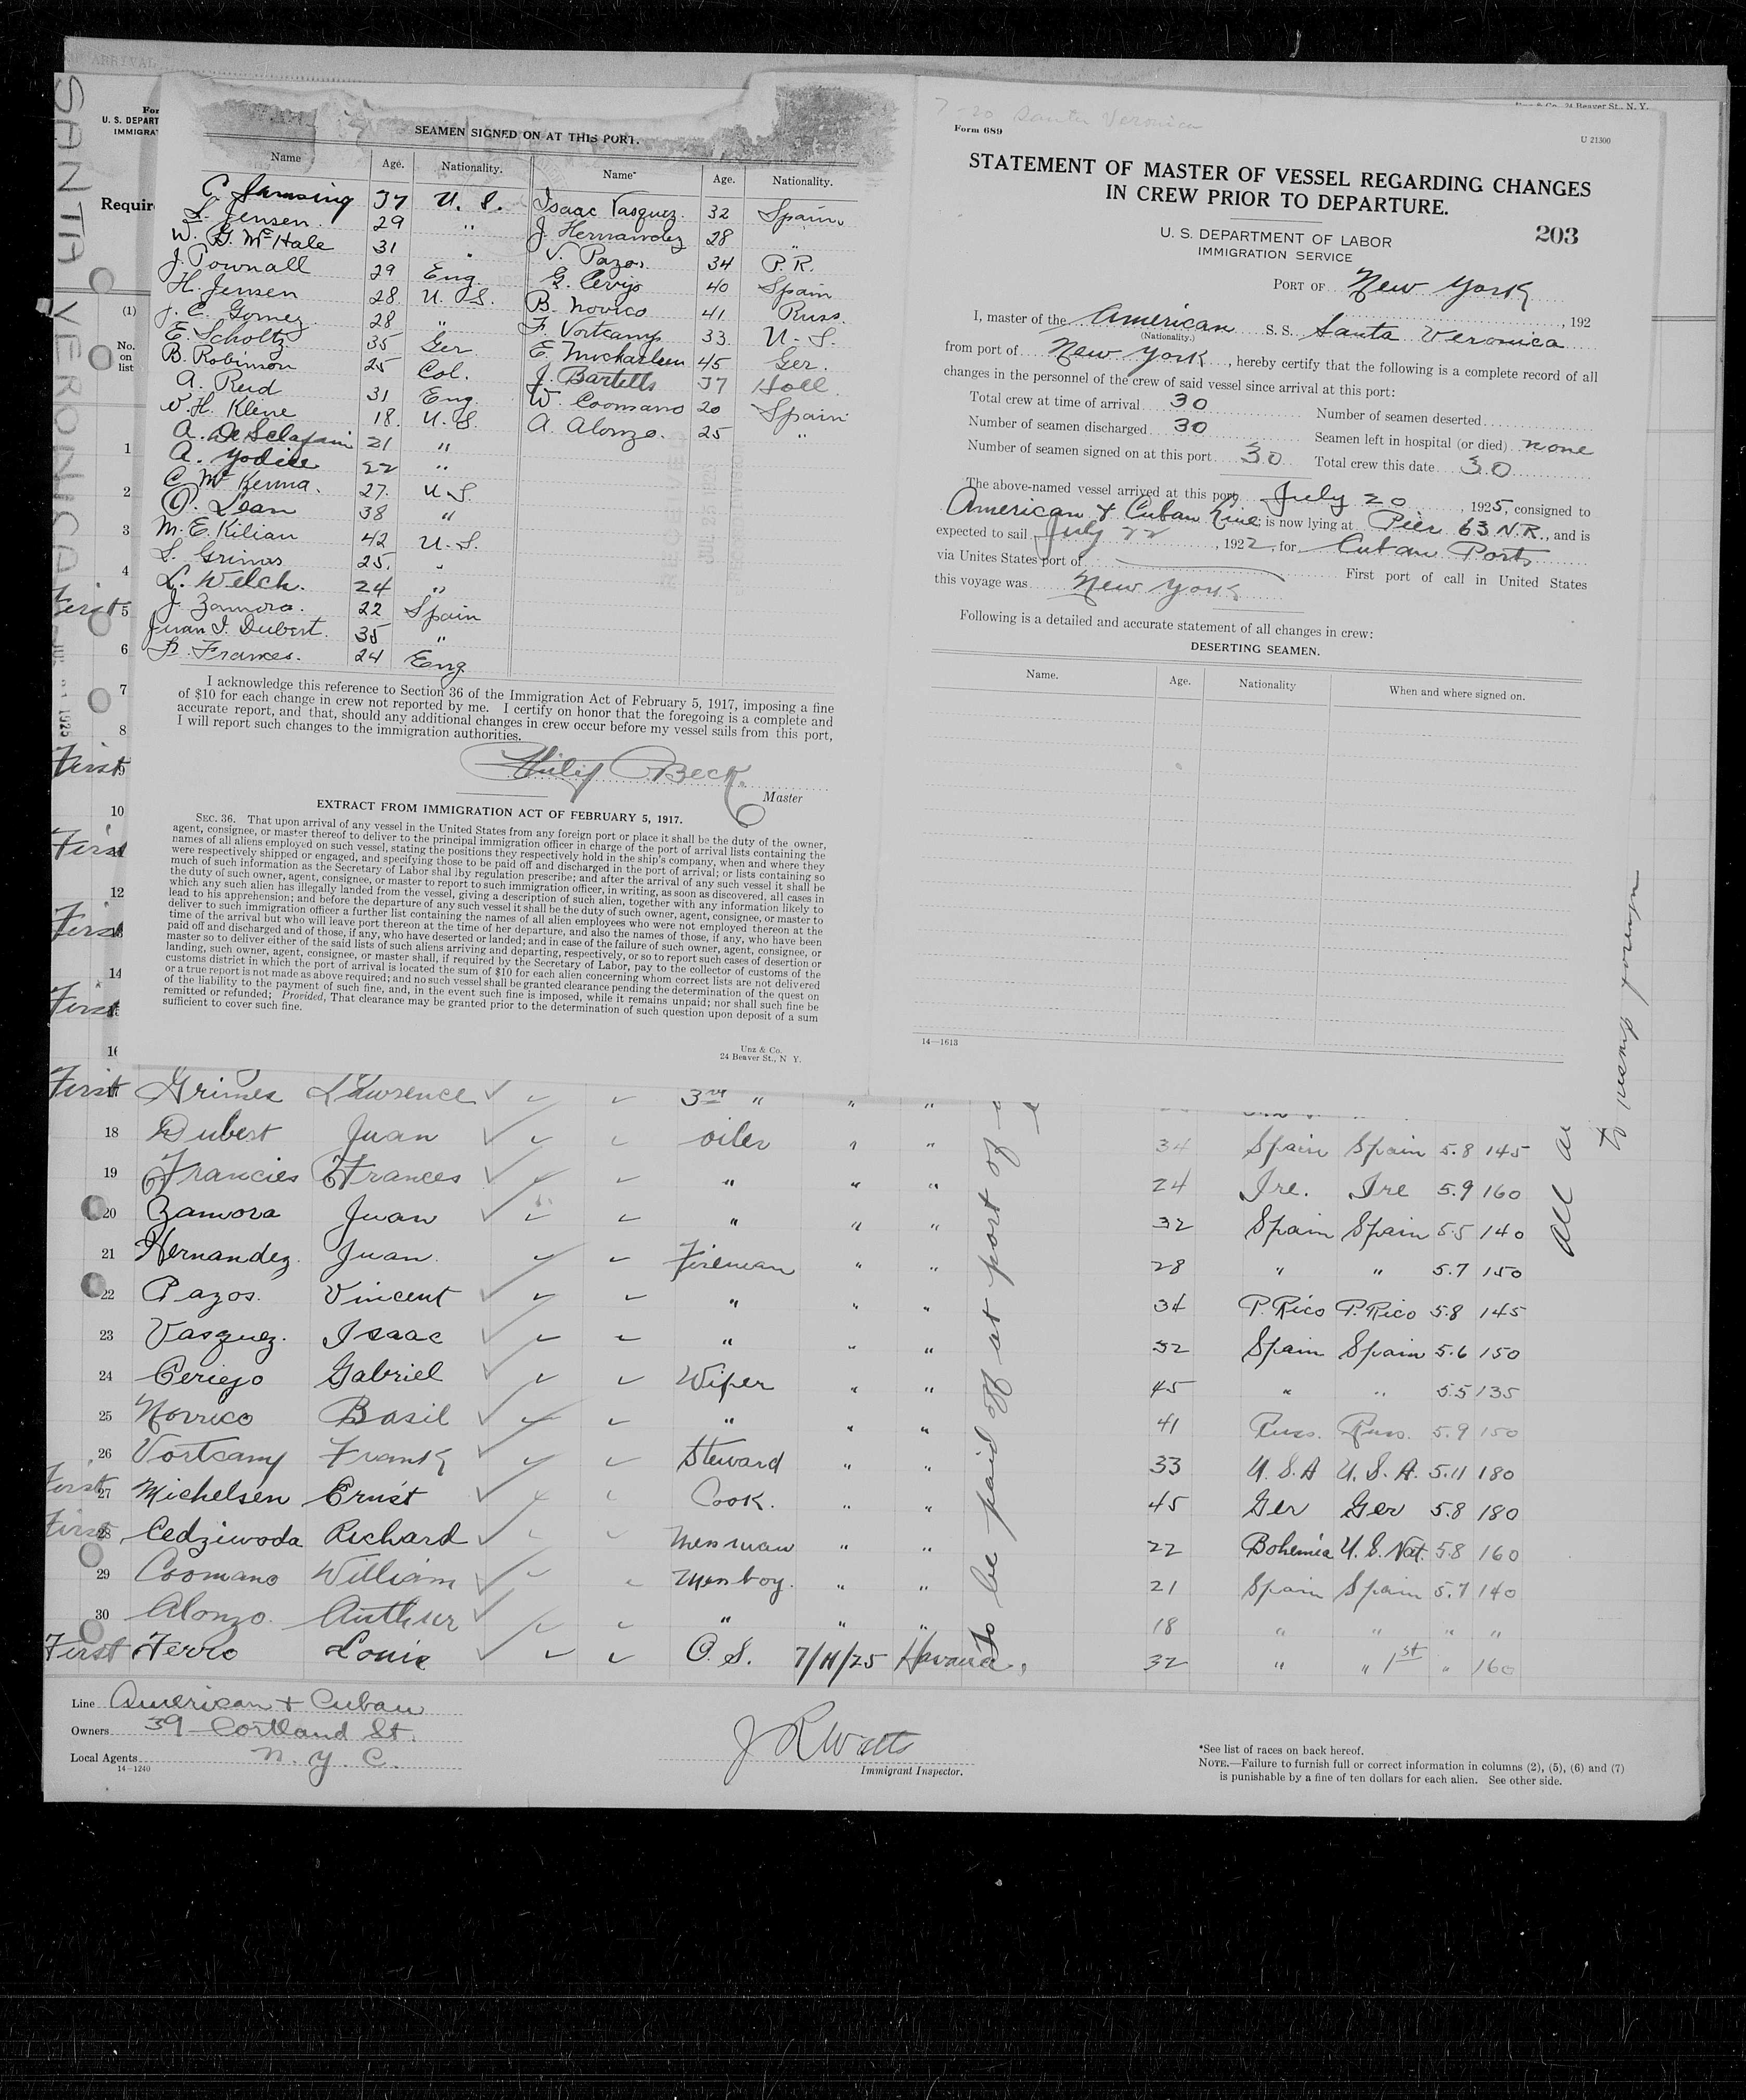 ARRIVAL
SANTA VERONICA
U. S. DEPART
IMMIGRA
Requir
SEAMEN SIGNED ON AT THIS PORT.
Name Age. Nationality. Name Age. Nationality.
37 U. S. Isaac Vasquez. 32 Spain
L. Jensen. 29 " J. Hernandez 28 "
W. G. McHale 31 " V. Pazos. 34 P.R.
J. Pownall 29 Eng. G. 40 Spain
H. Jensen 28. U. S. B. Novico 41 Russ.
J. C. Gomez 28 " F. Vortcamp 33. U. S.
E. Scholtz 35 Ger E. 45 Ger.
B. Robinson 25 Col. J. Bartells 37 Holl.
A. Reid 31 Eng. W. Coomano 20 Spain
V. H. Klene 18. U. S. A. Alonzo. 25 "
A. 21 "
A. Yodice 22 "
C. McKenna. 27. U.S.
O. Dean 38 "
M. E. Kilian 42 U.S.
L. Grimes 25. "
L. Welch. 24 "
J. Zamora. 22 Spain
Juan I. Dubert. 35 "
F. Frances. 24 Eng.
I acknowledge this reference to Section 36 of the Immigration Act of February 5, 1917, imposing a fine
of $10 for each change in crew not reported by me. I certify on honor that the foregoing is a complete and
accurate report, and that, should any additional changes in crew occur before my vessel sails from this port,
I will report such changes to the immigration authorities.
Philip Beck.
Master
EXTRACT FROM IMMIGRATION ACT OF FEBRUARY 5, 1917.
SEC. 36. That upon arrival of any vessel in the United States from any foreign port or place it shall be the duty of the owner,
agent, consignee, or master thereof to deliver to the principal immigration officer in charge of the port of arrival lists containing the
names of all aliens employed on such vessel, stating the positions they respectively hold in the ship's company, when and where they
were respectively shipped or engaged, and specifying those to be paid off and discharged in the port of arrival; or lists containing so
much of such information as the Secretary of Labor shal lby regulation prescribe; and after the arrival of any such vessel it shall be
the duty of such owner, agent, consignee, or master to report to such immigration officer, in writing, as soon as discovered, all cases in
which any such alien has illegally landed from the vessel, giving a description of such alien, together with any information likely to
lead to his apprehension; and before the departure of any such vessel it shall be the duty of such owner, agent, consignee, or master to
deliver to such immigration officer a further list containing the names of all alien employees who were not employed thereon at the
time of the arrival but who will leave port thereon at the time of her departure, and also the names of those, if any, who have been
paid off and discharged and of those, if any, who have deserted or landed; and in case of the failure of such owner, agent, consignee, or
master so to deliver either of the said lists of such aliens arriving and departing, respectively, or so to report such cases of desertion or
landing, such owner, agent, consignee, or master shall, if required by the Secretary of Labor, pay to the collector of customs of the
customs district in which the port of arrival is located the sum of $10 for each alien concerning whom correct lists are not delivered
or a true report is not made as above required; and no such vessel shall be granted clearance pending the determination of the quest on
of the liability to the payment of such fine, and, in the event such fine is imposed, while it remains unpaid; nor shall such fine be
remitted or refunded; Provided, That clearance may be granted prior to the determination of such question upon deposit of a sum
sufficient to cover such fine.
Unz & Co.
24 Beaver St., N Y.
Unz & Co. 24 Beaver St., N. Y.
7-20 Santa Veronica
Form 689
U 21300
STATEMENT OF MASTER OF VESSEL REGARDING CHANGES
IN CREW PRIOR TO DEPARTURE.
U. S. DEPARTMENT OF LABOR
IMMIGRATION SERVICE
203
PORT OF New York
, 192
I, master of the American S. S. Santa Veronica
(Nationality.)
from port of New York, hereby certify that the following is a complete record of all
changes in the personnel of the crew of said vessel since arrival at this port:
Total crew at time of arrival 30 Number of seamen deserted
Number of seamen discharged 30 Seamen left in hospital (or died) none
Number of seamen signed on at this port 30 Total crew this date 30
The above-named vessel arrived at this port July 20, 1925, consigned to
American & Cuban Line; is now lying at Pier 63 N.R., and is
expected to sail July 22, 1922, for Cuban Ports
via Unites States port of First port of call in United States
this voyage was New York
Following is a detailed and accurate statement of all changes in crew:
DESERTING SEAMEN.
Name. Age. Nationality When and where signed on.
14—1613
(1)
No. on list
1
2
3
4
First 5
6
7
8
First 9
10
First
12
First
14
First
First Grimes Lawrence 3rd " " "
18 Dubert Juan oiler " " 34 Spain Spain 5.8 145
19 Francies Frances " " " 24 Ire. Ire 5.9 160
20 Zamora Juan " " " 32 Spain Spain 5.5 140
21 Hernandez. Juan. Fireman " " 28 " " 5.7 150
22 Pazos. Vincent " " " 34 P. Rico P. Rico 5.8 145
23 Vasquez. Isaac " " " 32 Spain Spain 5.6 150
24 Periejo Gabriel Wiper " " 45 " " 5.5 135
25 Novrico Basil " " " 41 Russ. Russ. 5.9 150
26 Vortcamp Frank Steward " " 33 U.S.A U.S.A. 5.11 180
First 27 Michelsen Ernst Cook. " " 45 Ger Ger 5.8 180
First 28 Cedziwoda Richard Messman " " 22 Bohemia U.S. Nat. 5.8 160
29 Coomano William Messboy. " " 21 Spain Spain 5.7 140
30 Alonzo. Authur " " " 18 " " " "
First Ferro Louis O. S. 7/11/25 Havana. 32 " " 1st " 160
To be paid off at port of
All
to reship foreign
Line American & Cuban
Owners 39 Cortland St.
Local Agents N. Y. C.
14-1240
J R Watts
Immigrant Inspector.
*See list of races on back hereof.
NOTE.—Failure to furnish full or correct information in columns (2), (5), (6) and (7)
is punishable by a fine of ten dollars for each alien. See other side.